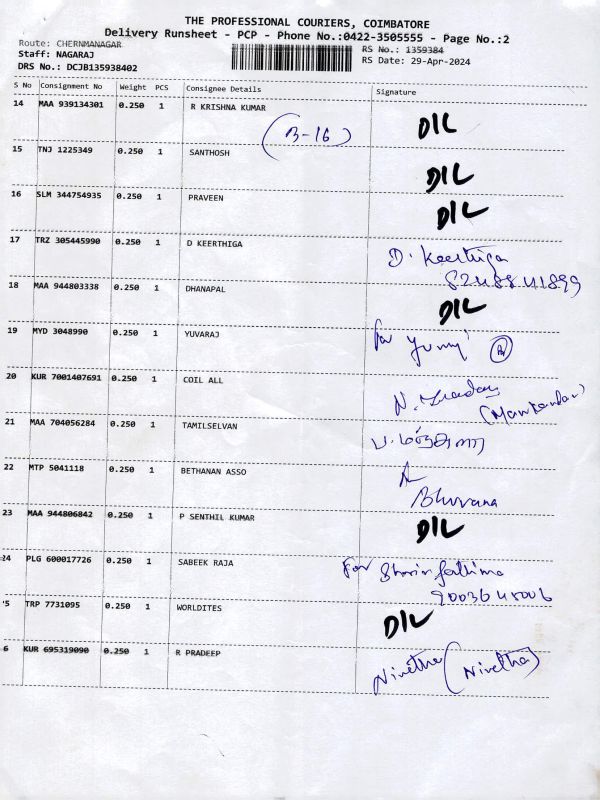 THE PROFESSIONAL COURIERS, COIMBATORE
Delivery Runsheet - PCP - Phone No.:0422-3505555 - Page No.:2
Route: CHERNMANAGAR
Staff: NAGARAJ
DRS No.: DCJB135938402
RS No.: 1359384
RS Date: 29-Apr-2024
S No Consignment No Weight PCS Consignee Details Signature
14 MAA 939134301 0.250 1 R KRISHNA KUMAR D/L
(B-16)
15 TNJ 1225349 0.250 1 SANTHOSH D/L
16 SLM 344754935 0.250 1 PRAVEEN D/L
17 TRZ 305445990 0.250 1 D KEERTHIGA D. Keerthiga
18 MAA 944803338 0.250 1 DHANAPAL D/L
19 MYD 3048990 0.250 1 YUVARAJ For
20 KUR 7001407691 0.250 1 COIL ALL N.
21 MAA 704056284 0.250 1 TAMILSELVAN
22 MTP 5041118 0.250 1 BETHANAN ASSO
Bhuvana
23 MAA 944806842 0.250 1 P SENTHIL KUMAR D/L
24 PLG 600017726 0.250 1 SABEEK RAJA For
'5 TRP 7731095 0.250 1 WORLDITES D/L
6 KUR 695319090 0.250 1 R PRADEEP Nivetha (Nivetha)